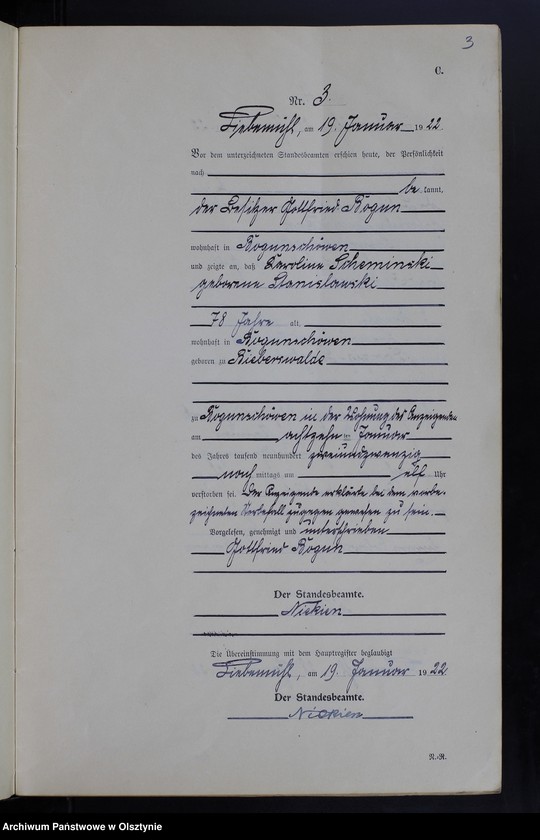 3
C.
Nr. 3.
Liebemühl, am 19. Januar 1922.
Vor dem unterzeichneten Standesbeamten erschien heute, der Persönlichkeit
nach
be kannt,
der Besitzer Gottfried Rogun
wohnhaft in Rogunschöwen
und zeigte an, daß Karoline Scheminski
geborene Stanislawski
78 Jahre alt,
wohnhaft in Rogunschöwen
geboren zu Bieberswalde
zu Rogunschöwen in der Wohnung des Anzeigenden
am achtzehn ten Januar
des Jahres tausend neunhundert zweiundzwanzig
nach mittags um elf Uhr
verstorben sei. Der Anzeigende erklärte bei dem vorbe-
zeichneten Sterbefall zugegen gewesen zu sein.
Vorgelesen, genehmigt und unterschrieben
Gottfried Rogun
Der Standesbeamte.
Nickien
Die Übereinstimmung mit dem Hauptregister beglaubigt
Liebemühl, am 19. Januar 1922
Der Standesbeamte.
Nickien
N.-R.
Archiwum Państwowe w Olsztynie